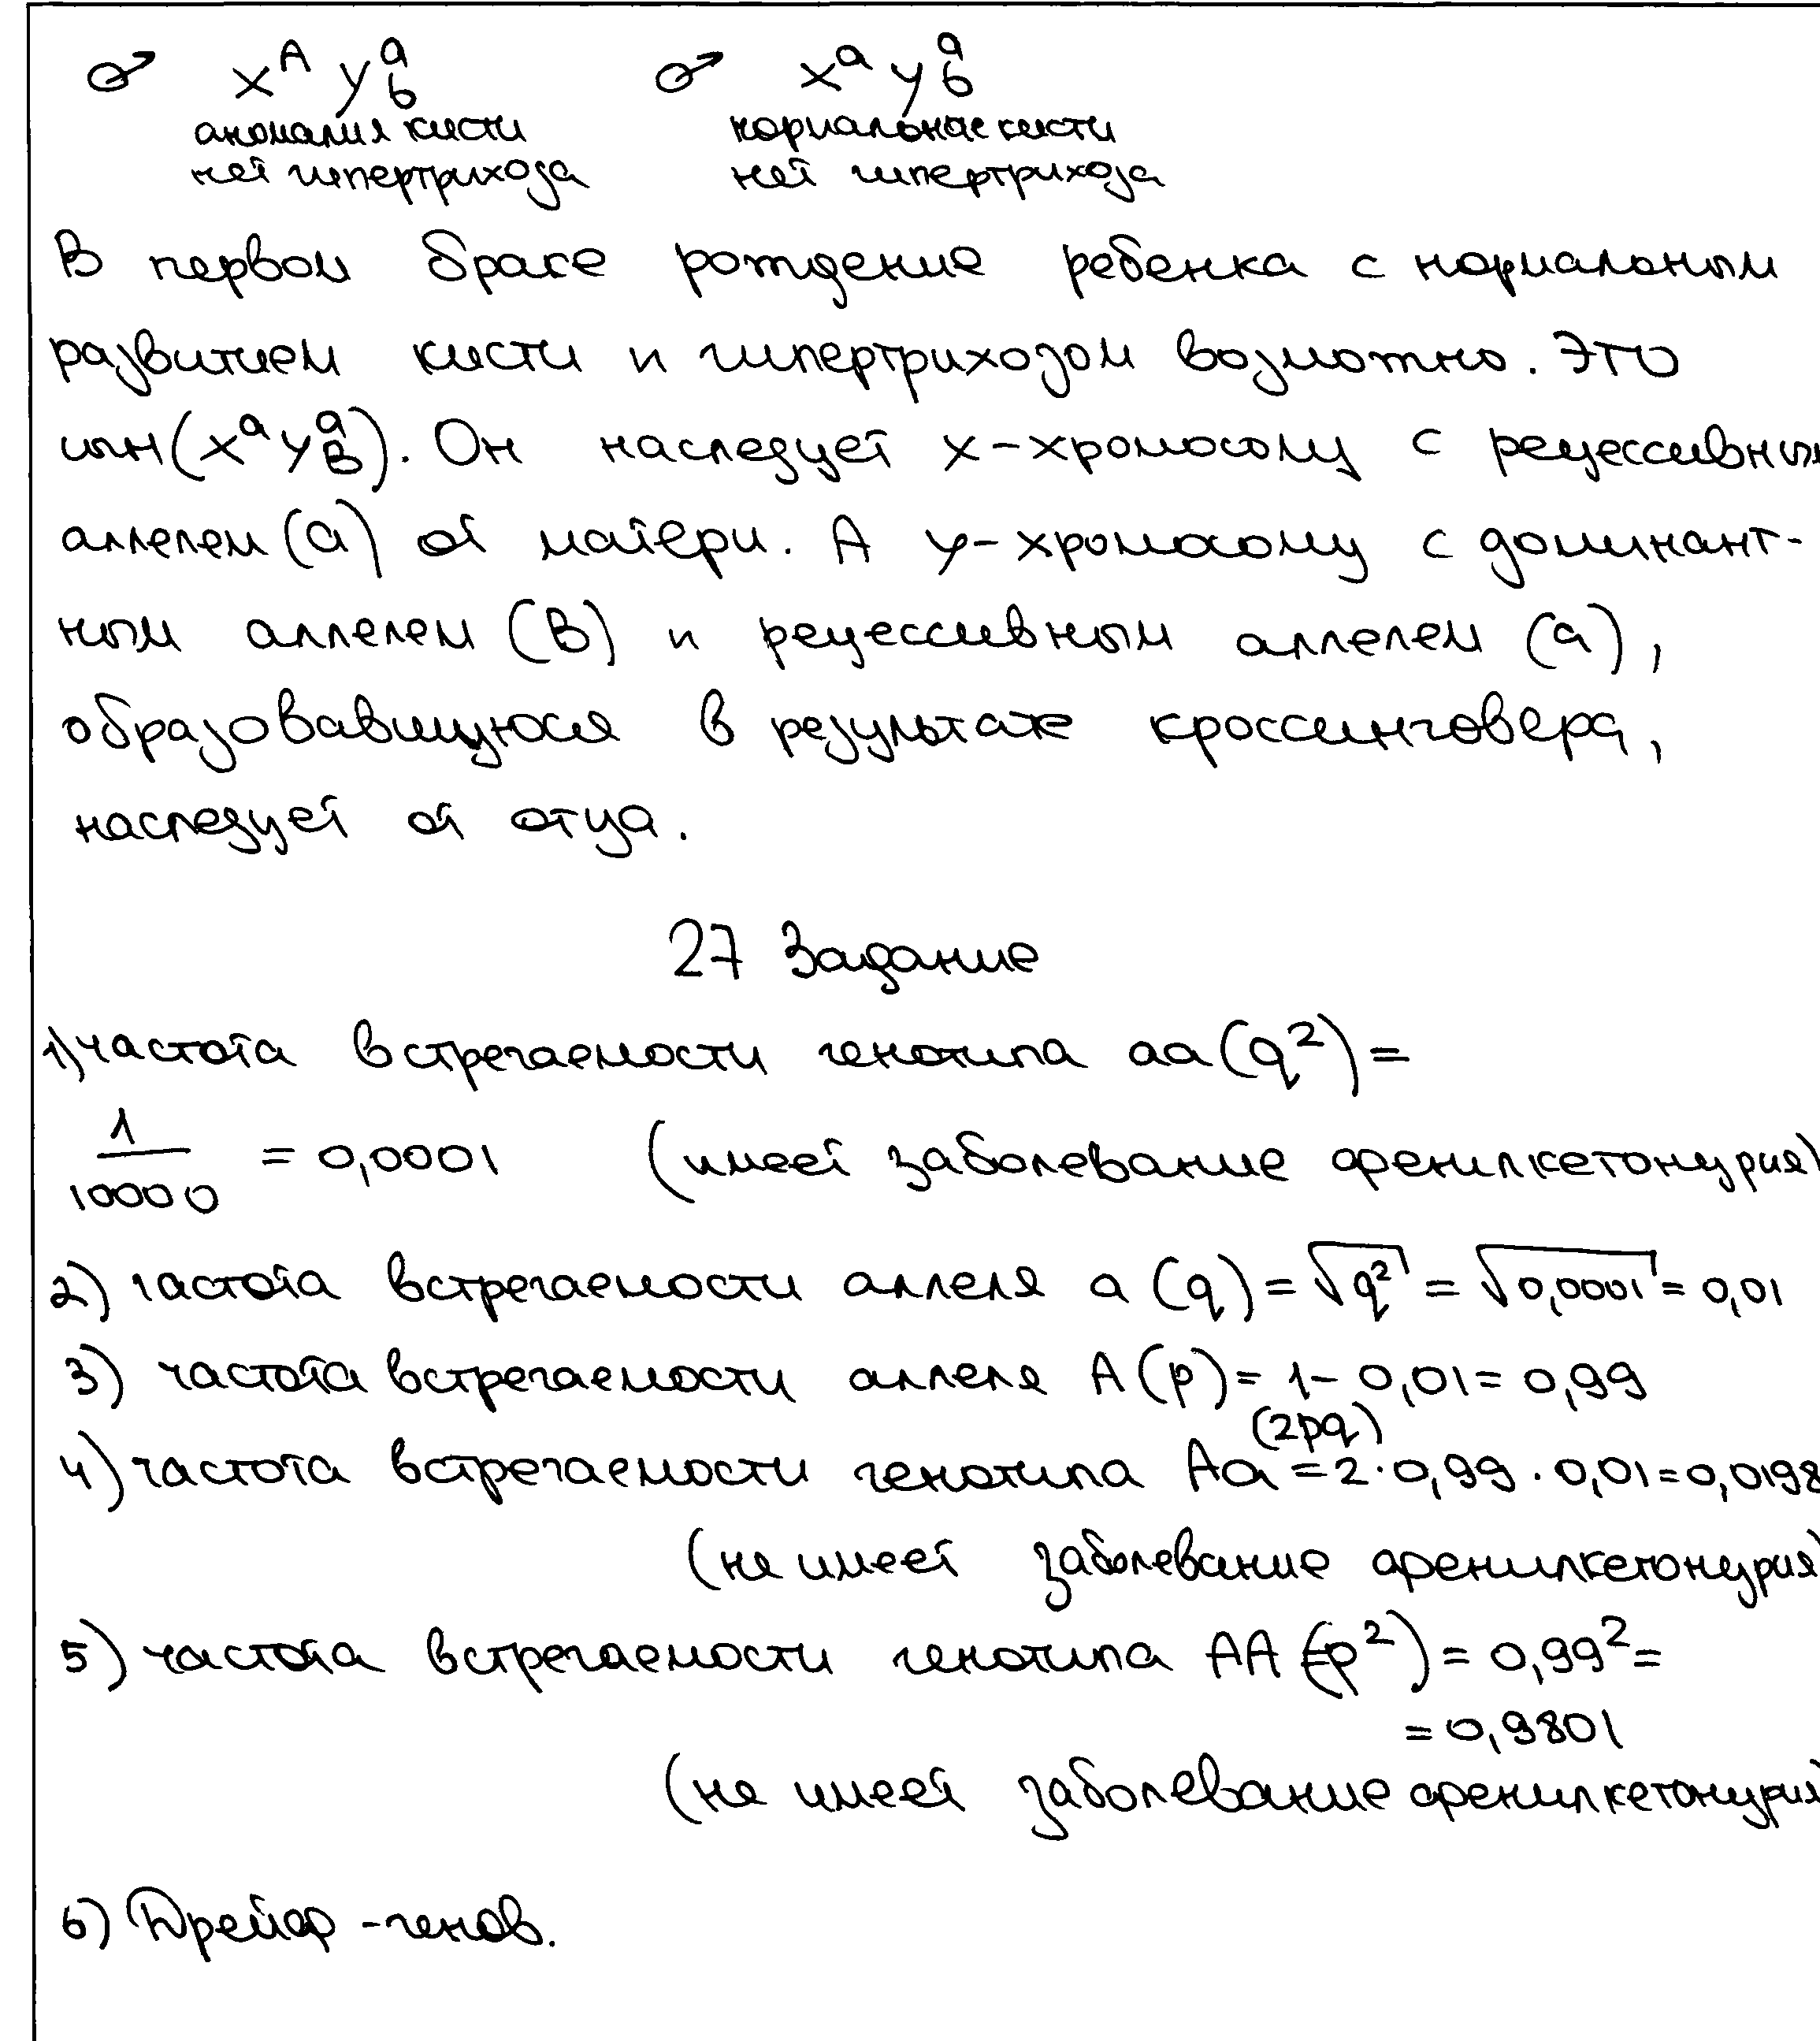 ♂ X^A Y^a_b ♂ X^a Y^a_b
аномалия кисти нормальные кисти
нет гипертрихоза нет гипертрихоза
В первом браке рождение ребенка с нормальным
развитием кисти и гипертрихозом возможно. Это
сын (X^a Y^a_B). Он наследует х-хромосому с рецессивным
аллелем (a) от матери. А у-хромосому с доминант-
ным аллелем (B) и рецессивным аллелем (a),
образовавшуюся в результате кроссинговера,
наследует от отца.
27 Задание
1) частота встречаемости генотипа aa (q²) =
1/10000 = 0,0001 (имеет заболевание фенилкетонурия)
2) частота встречаемости аллеля a (q) = √q² = √0,0001 = 0,01
3) частота встречаемости аллеля A (p) = 1 - 0,01 = 0,99
4) частота встречаемости генотипа Aa (2pq) = 2 · 0,99 · 0,01 = 0,0198
(не имеет заболевание фенилкетонурия)
5) частота встречаемости генотипа AA (p²) = 0,99² =
= 0,9801
(не имеет заболевание фенилкетонурия)
6) Дрейф - генов.